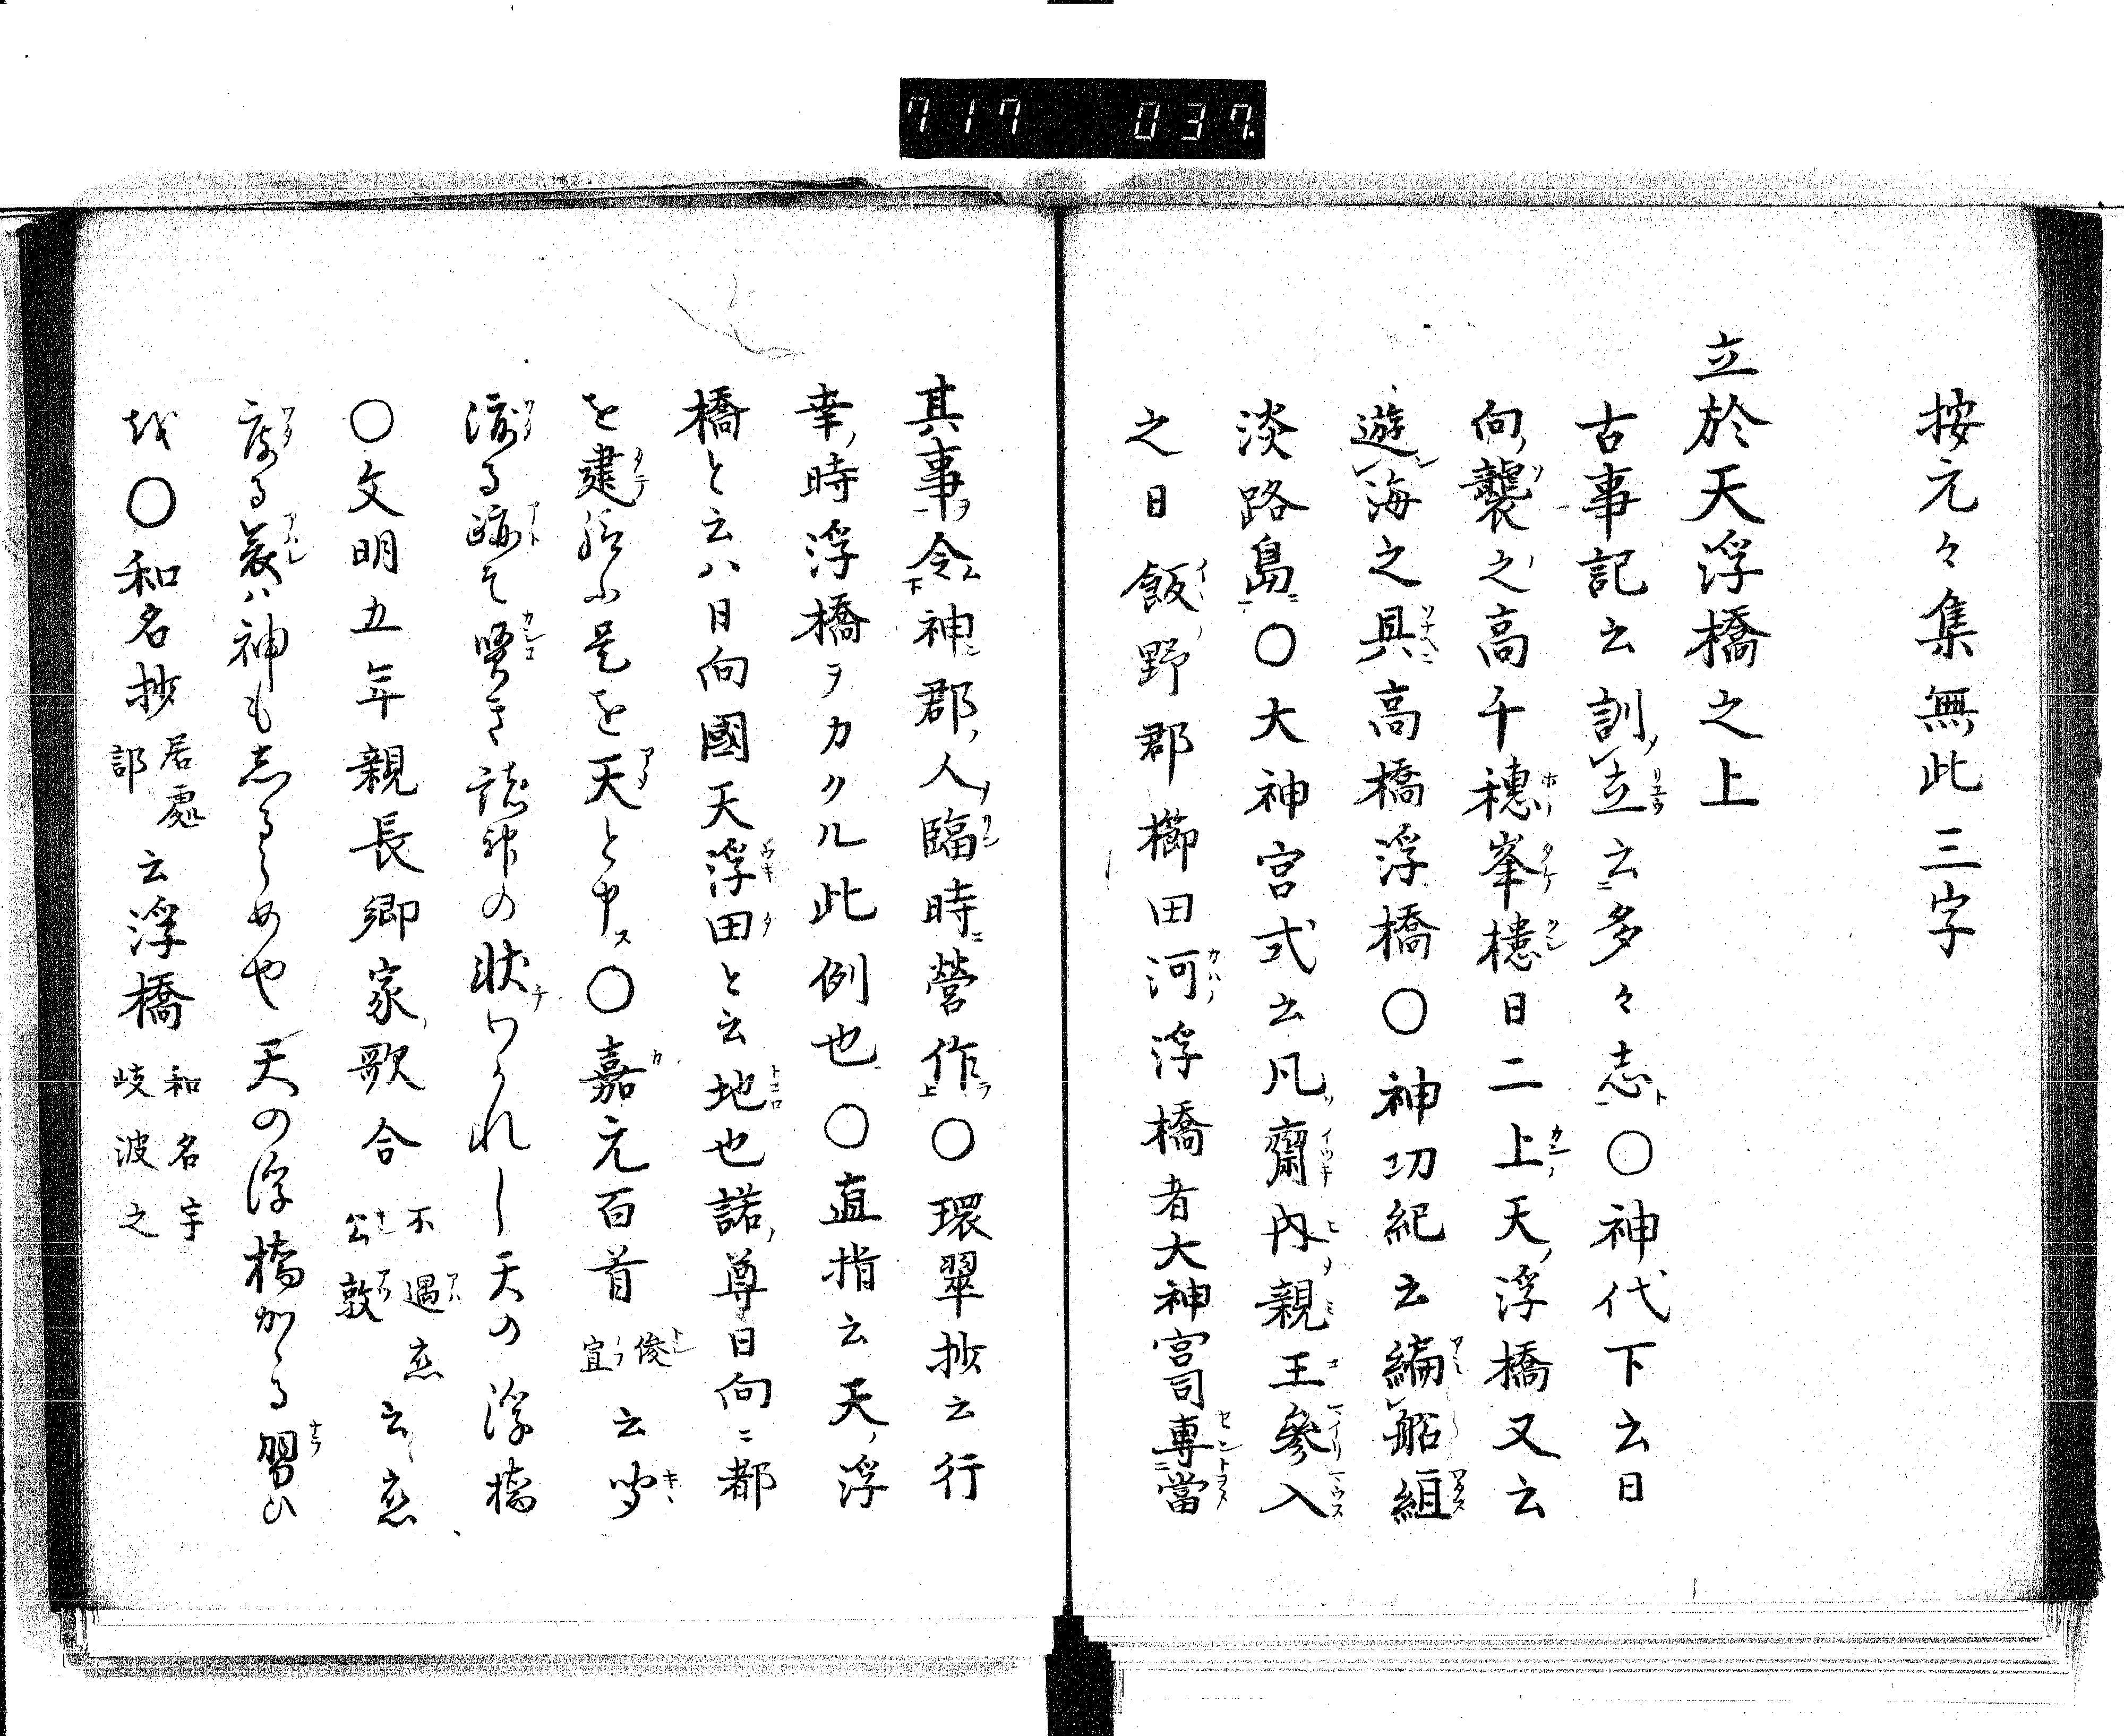 717 037
按元々集無此三字
立於天浮橋之上
古事記云訓立云多々志○神代下云日
向襲之高千穂峯槵日二上天浮橋又云
遊海之具高橋浮橋○神功紀云編船絚
淡路島○大神宮式云凡齋内親王參入
之日飯野郡櫛田河浮橋者大神宮司専當
其事令神郡人臨時營作○環翠抄云行
幸時浮橋ヲカクル此例也○直指云天浮
橋と云ハ日向國天浮田と云地也諾尊日向ニ都
を建給ふ是を天と申ス○嘉元百首俊宣云
渡る跡そ畏き諸神の状われし天の浮橋
○文明五年親長卿家歌合不遇恋公敦云恋
渡る哀ハ神もしるらめや天の浮橋かゝる習ひ
○和名抄居處部云浮橋和名宇岐波之